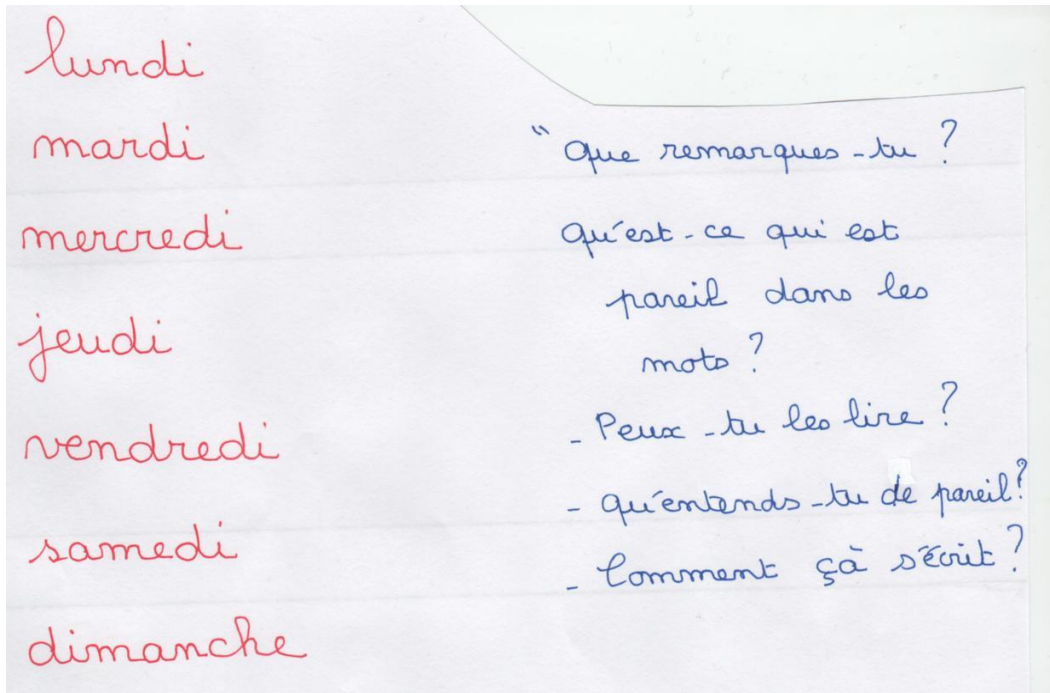 lundi
mardi
mercredi
jeudi
vendredi
samedi
dimanche
" Que remarques-tu ?
Qu'est-ce qui est
pareil dans les
mots ?
- Peux-tu les lire ?
- Qu'entends-tu de pareil ?
- Comment çà s'écrit ?